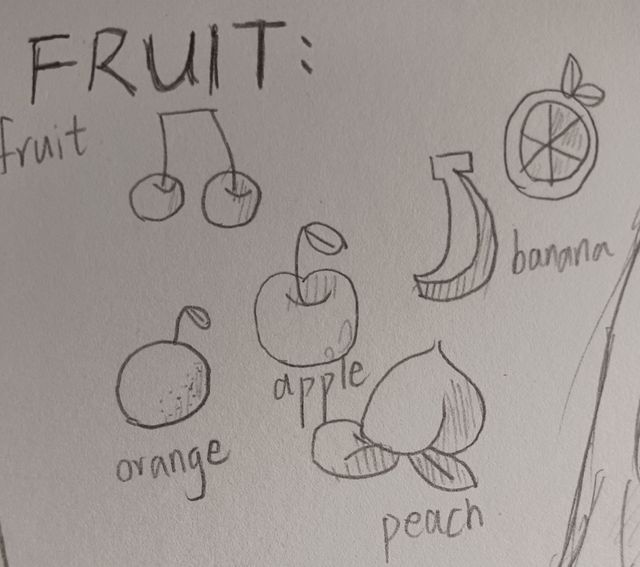 FRUIT:
fruit
banana
apple
orange
peach